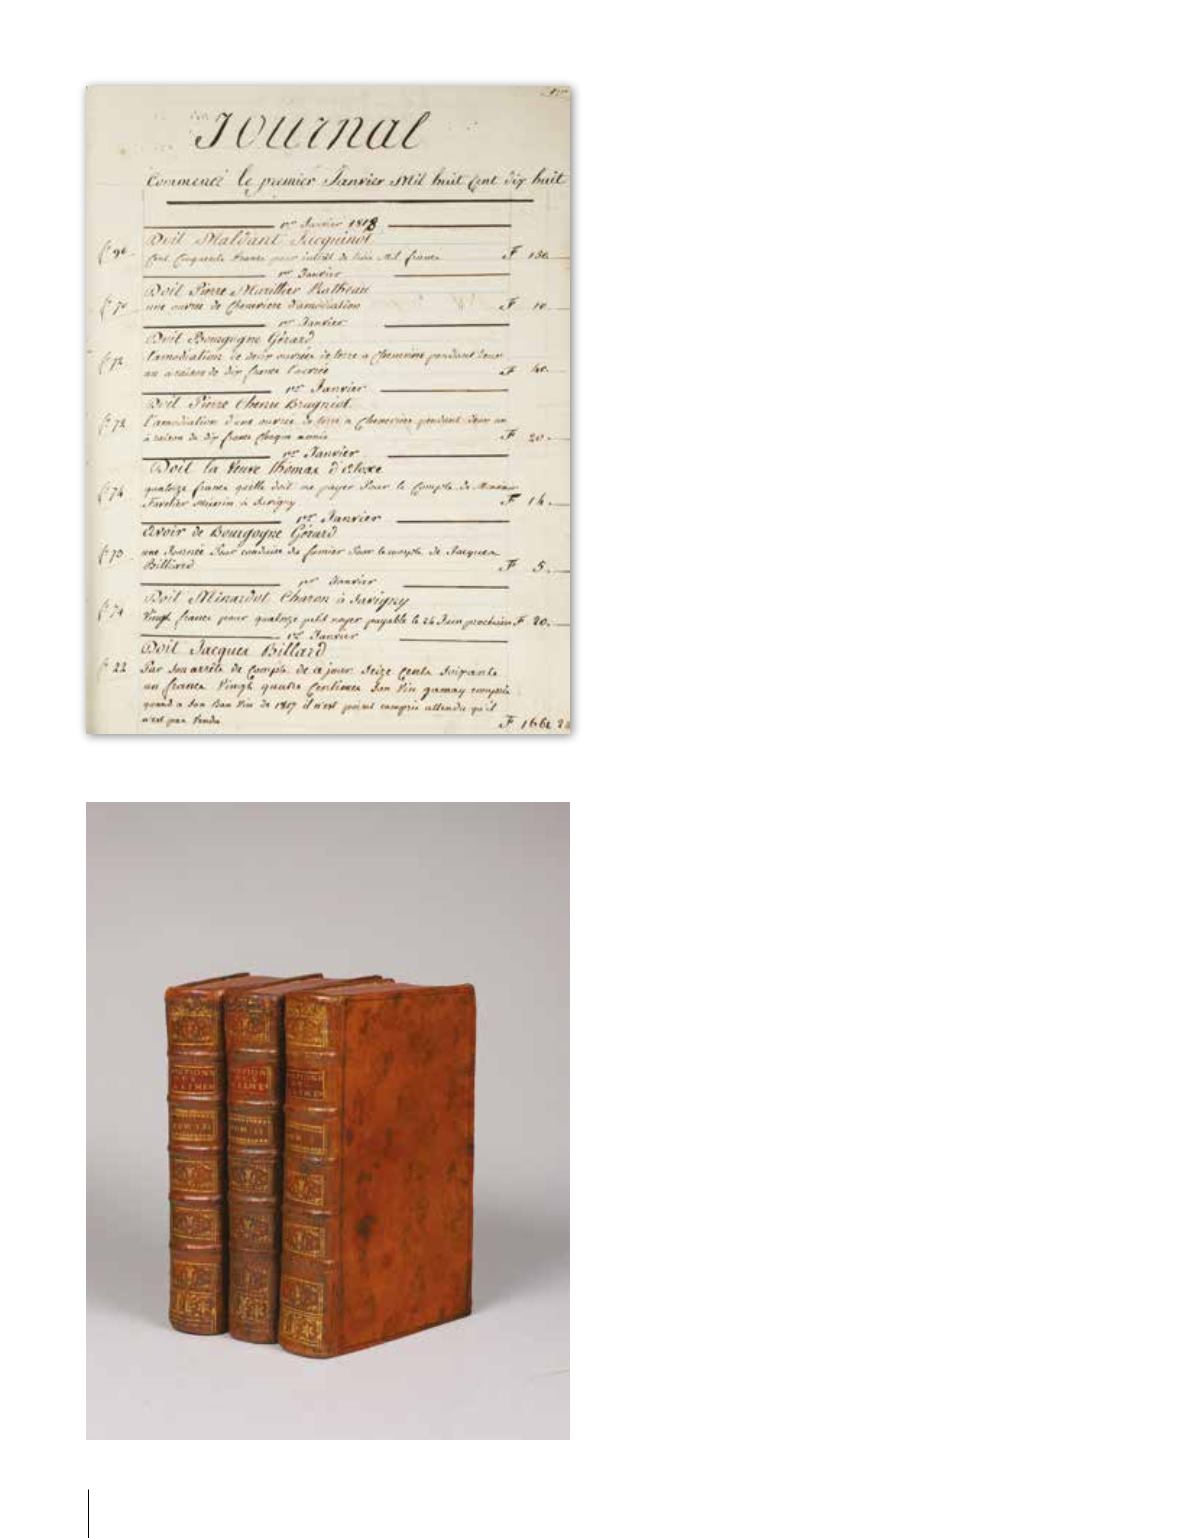 Journal
Commencé le premier Janvier Mil huit Cent dix huit
1er Janvier 1818
Doit Maldant Jacquinot
fo 96 Cent Cinquante francs pour intérêt de trois Mil francs F 150.
1er Janvier
Doit Pierre
fo 70 une ouvrée de Cheneviere d'amodiation F 10.
1er Janvier
Doit Bourgogne Gérard
fo 72 l'amodiation de deux ouvrées de terre a Cheneviere pendant deux
an a raison de dix francs l'ouvrée F 40.
1er Janvier
Doit Pierre Chenu Brugniot
fo 72 l'amodiation d'une ouvrée de terre a Cheneviere pendant deux an
a raison de dix francs Chaque année F 20.
1er Janvier
Doit la Veuve thomas
fo 74 quatorze francs qu'elle doit me payer Pour le Compte de
a Savigny F 14.
1er Janvier
Avoir de Bourgogne Gérard
fo 73 une Journée Pour conduire du fumier Pour le compte de Jacques
Billiard F 5.
1er Janvier
Doit Minardot Charon à Savigny
fo 74 Vingt francs pour quatorze petit noyer payable le 24 Juin prochain F 20.
1er Janvier
Doit Jacques Billard
fo 22 Par Son arrêté de Compte de ce jour Seize Cents Soixante
un francs Vingt quatre Centimes Son Vin gamay compris
quand a Son Bon Vin de 1817 il n'est point compris attendu qu'il
n'est pas Vendu F 1661 24
DICTIONN
DES
ALIMEN
TOM. III
DICTIONN
DES
ALIMEN
TOM. II
DICTIONN
DES
ALIMEN
TOM. I